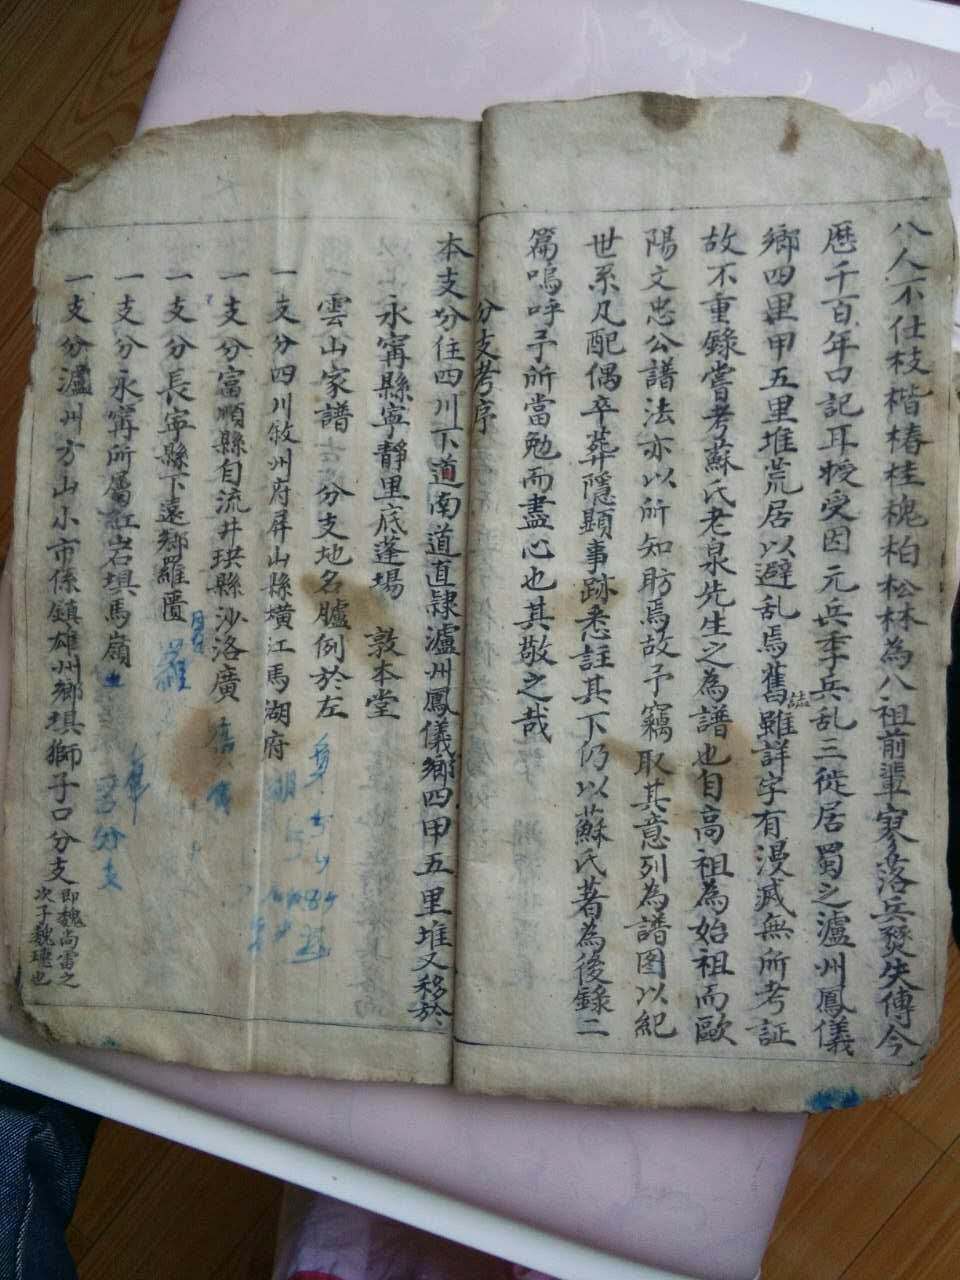 八人不仕枝楷椿桂槐柏松林為八祖前輩寥落兵燹失傳今
歷千百年口記耳授受因元兵季兵乱三徙居蜀之瀘州鳳儀
鄉四里甲五里堆荒居以避乱焉舊譜雖詳字有漫滅無所考証
故不重錄嘗考蘇氏老泉先生之為譜也自高祖為始祖而歐
陽文忠公譜法亦以所知肪焉故予竊取其意列為譜图以紀
世系及配偶卒葬隱顕事跡悉註其下仍以蘇氏著為後錄二
篇嗚呼予所當勉而盡心也其敬之哉
分支考序
本支分住四川下道南道直隸瀘州鳳儀鄉四甲五里堆又移於
永甯縣寧靜里底蓬場 敦本堂
雲山家譜 分支地名臚例於左
一支分四川敘州府屏山縣横江馬湖府
一支分富順縣自流井珙縣沙洛廣
一支分長寧縣下遠鄉羅匮
一支分永甯所屬紅岩埧馬嶺
一支分瀘州方山小市係鎮雄州鄉埧獅子口分支即魏尚雷之次子魏瑰也
分支